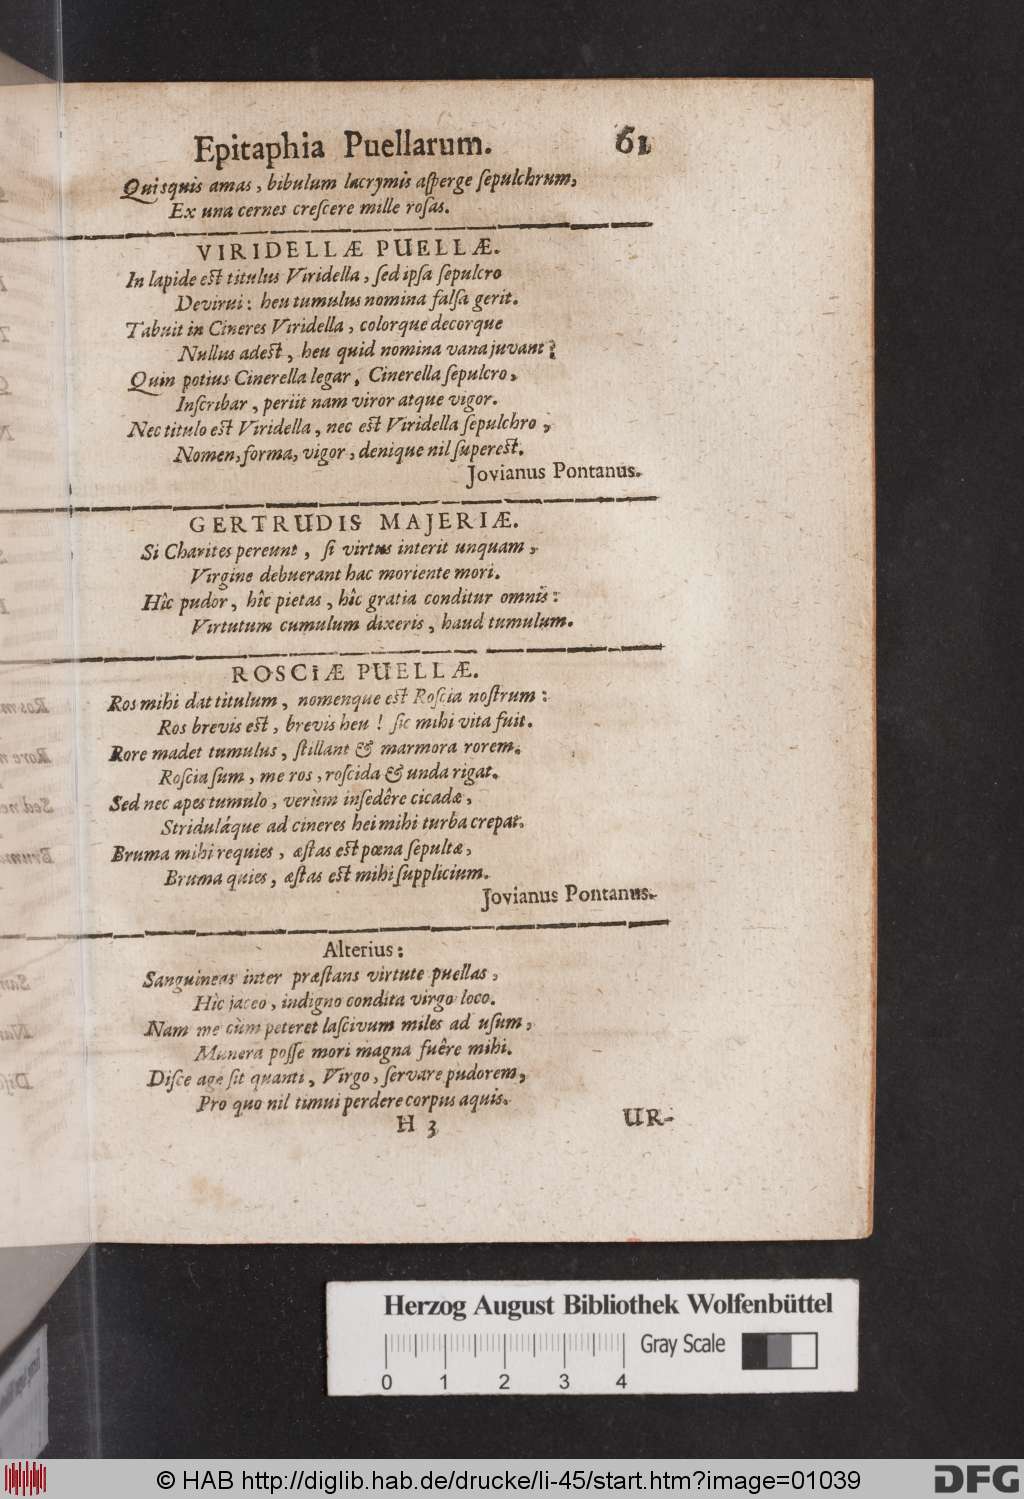 Epitaphia Puellarum. 61
Quisquis amas, bibulum lacrymis aſperge ſepulchrum,
Ex una cernes creſcere mille roſas.
VIRIDELLÆ PUELLÆ.
In lapide est titulus Viridella, ſed ipſa ſepulcro
Devirui: heu tumulus nomina falſa gerit.
Tabuit in Cineres Viridella, colorque decorque
Nullus adest, heu quid nomina vana juvant?
Quin potius Cinerella legar, Cinerella ſepulcro,
Inſcribar, periit nam viror atque vigor.
Nec titulo est Viridella, nec est Viridella ſepulchro,
Nomen, forma, vigor, denique nil ſuperest.
Jovianus Pontanus.
GERTRUDIS MAJERIÆ.
Si Charites pereunt, ſi virtus interit unquam,
Virgine debuerant hac moriente mori.
Hîc pudor, hîc pietas, hîc gratia conditur omnis:
Virtutum cumulum dixeris, haud tumulum.
ROSCIÆ PUELLÆ.
Ros mihi dat titulum, nomenque est Roſcia noſtrum:
Ros brevis est, brevis heu! ſic mihi vita fuit.
Rore madet tumulus, ſtillant & marmora rorem.
Roſcia ſum, me ros, roſcida & unda rigat.
Sed nec apes tumulo, verùm inſedêre cicadæ,
Striduláque ad cineres hei mihi turba crepat.
Bruma mihi requies, æſtas est pœna ſepultæ,
Bruma quies, æſtas est mihi ſupplicium.
Jovianus Pontanus.
Alterius:
Sanguineas inter præſtans virtute puellas,
Hîc jaceo, indigno condita virgo loco.
Nam me cùm peteret laſcivum miles ad uſum,
Munera poſſe mori magna fuêre mihi.
Diſce age ſit quanti, Virgo, ſervare pudorem,
Pro quo nil timui perdere corpus aquis.
H 3 UR-
Herzog August Bibliothek Wolfenbüttel
Gray Scale
0 1 2 3 4
© HAB http://diglib.hab.de/drucke/li-45/start.htm?image=01039
DFG